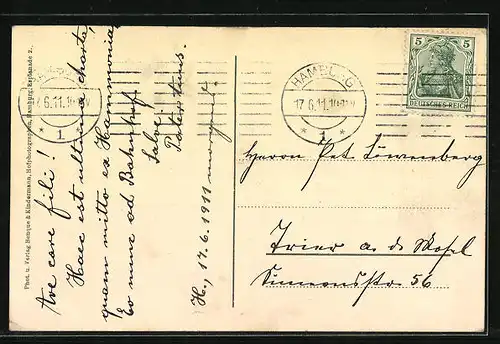 Ave care fili!
Haec est ultima charta,
quam mitto ex Hammonia.
Eo nunc ad Bahnhof.
Salve!
Pater tuus.
H., 17.6.1911 morgens.
Phot. u. Verlag Benque & Kindermann, Hofphotographen, Hamburg, Esplanade 2.
HAMBURG
17.6.11.10-11V
* 1 *
HAMBURG
17.6.11.10-11V
* 1 *
5 5
DEUTSCHES REICH
Herrn Pet. Löwenberg
Trier a. d. Mosel
Simeonsstr. 56